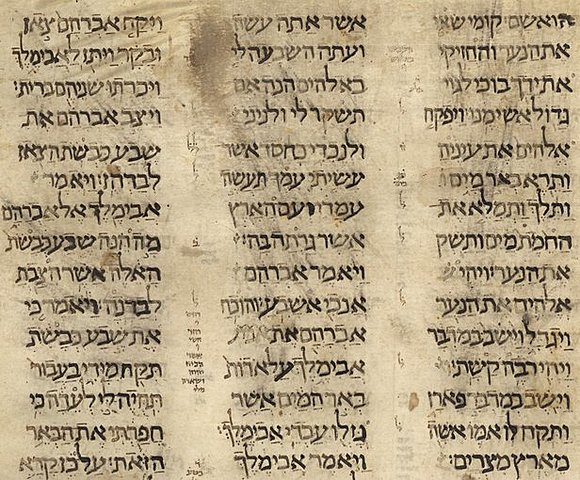 הוא שם קומי שאי
את הנער והחזיקי
את ידך בו כי לגוי
גדול אשימנו ויפקח
אלהים את עיניה
ותרא באר מים
ותלך ותמלא את
החמת מים ותשק
את הנער׃ ויהי
אלהים את הנער
ויגדל וישב במדבר
ויהי רבה קשת׃
וישב במדבר פארן
ותקח לו אמו אשה
מארץ מצרים׃
אשר אתה עשה׃
ועתה השבעה לי
באלהים הנה אם
תשקר לי ולניני
ולנכדי כחסד אשר
עשיתי עמך תעשה
עמדי ועם הארץ
אשר גרתה בה׃
ויאמר אברהם
אנכי אשבע׃ והוכח
אברהם את
אבימלך על אדות
באר המים אשר
גזלו עבדי אבימלך׃
ויאמר אבימלך
ויקח אברהם צאן
ובקר ויתן לאבימלך
ויכרתו שניהם ברית׃
ויצב אברהם את
שבע כבשת הצאן
לבדהן׃ ויאמר
אבימלך אל אברהם
מה הנה שבע כבשת
האלה אשר הצבת
לבדנה׃ ויאמר כי
את שבע כבשת
תקח מידי בעבור
תהיה לי לעדה כי
חפרתי את הבאר
הזאת׃ על כן קרא